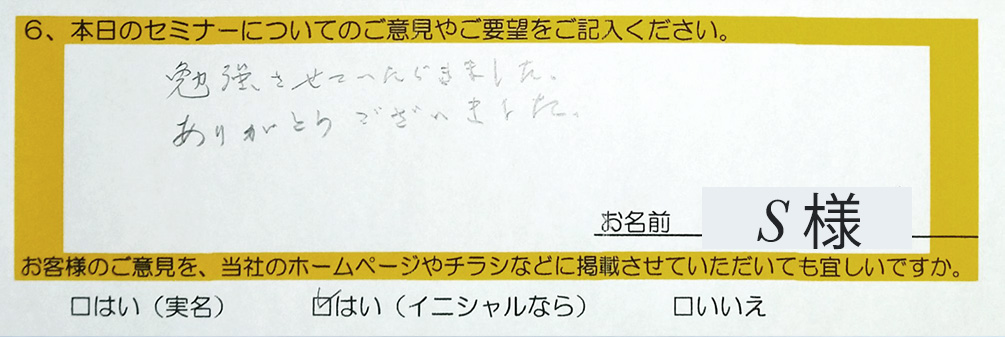 6、本日のセミナーについてのご意見やご要望をご記入ください。
勉強させていただきました。
ありがとうございました。
お名前 S 様
お客様のご意見を、当社のホームページやチラシなどに掲載させていただいても宜しいですか。
□はい（実名） ☑はい（イニシャルなら） □いいえ